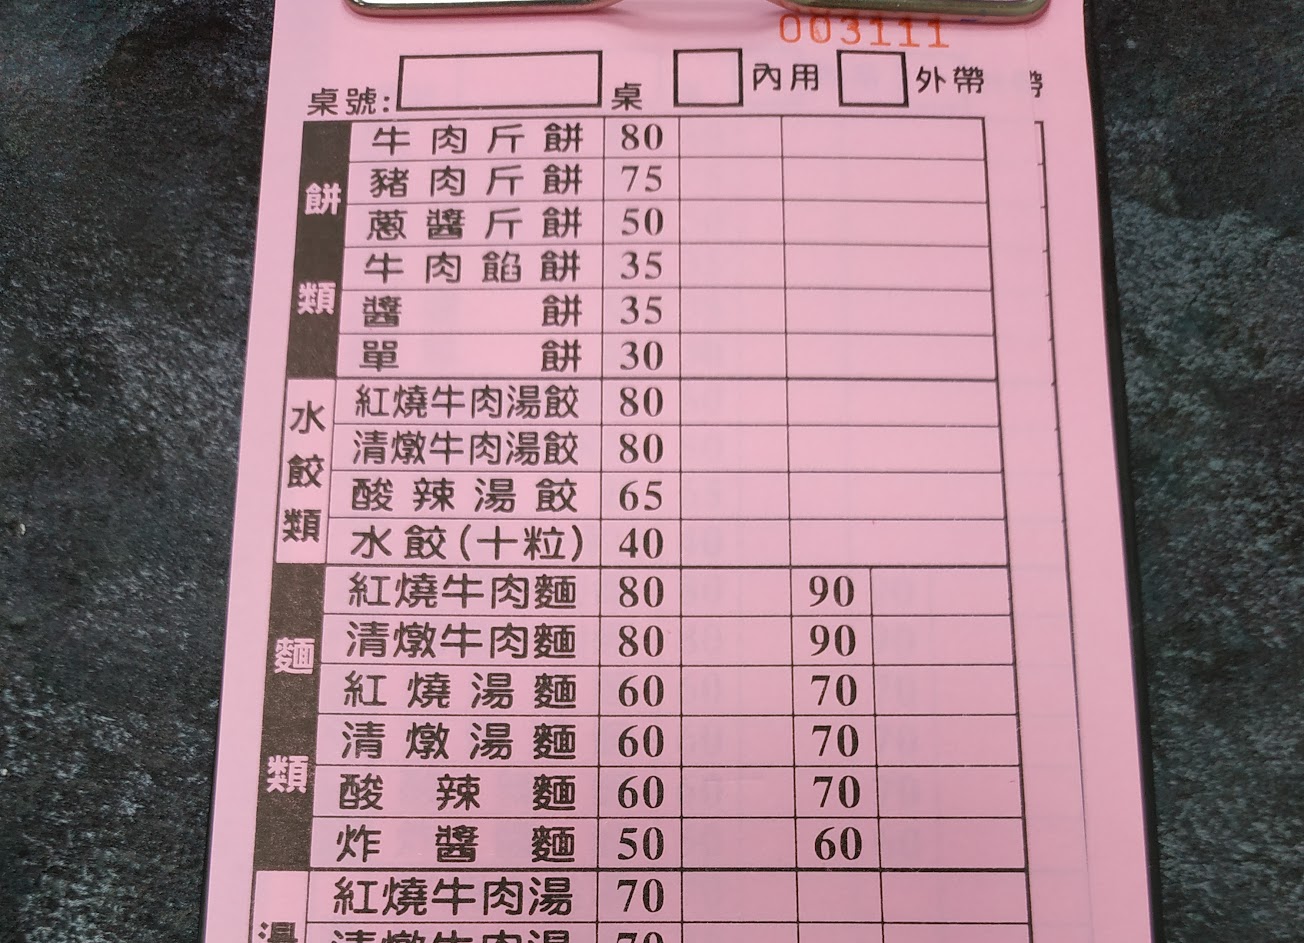 003111
桌號: 桌 內用 外帶 帶
餅類
牛肉斤餅 80
豬肉斤餅 75
蔥醬斤餅 50
牛肉餡餅 35
醬餅 35
單餅 30
水餃類
紅燒牛肉湯餃 80
清燉牛肉湯餃 80
酸辣湯餃 65
水餃(十粒) 40
麵類
紅燒牛肉麵 80 90
清燉牛肉麵 80 90
紅燒湯麵 60 70
清燉湯麵 60 70
酸辣麵 60 70
炸醬麵 50 60
湯
紅燒牛肉湯 70
清燉牛肉湯 70